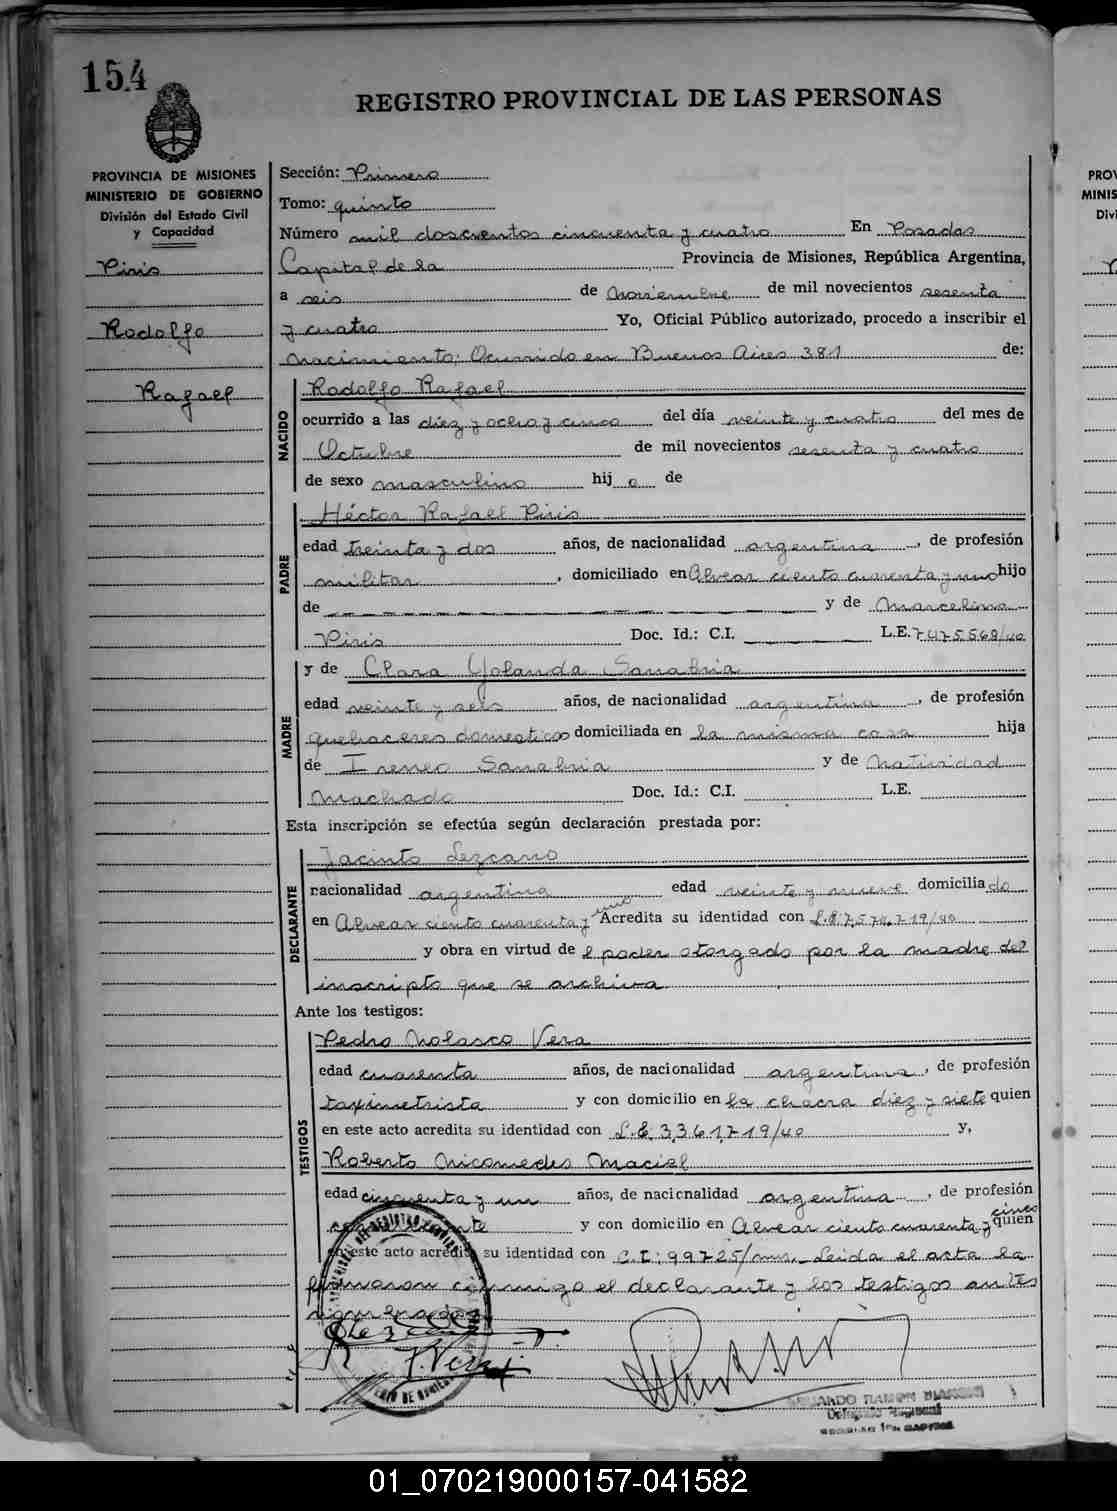 154
REGISTRO PROVINCIAL DE LAS PERSONAS
PROVINCIA DE MISIONES
MINISTERIO DE GOBIERNO
División del Estado Civil
y Capacidad
Piris
Rodolfo
Rafael
Sección: Primera
Tomo: quinto
Número mil doscientos cincuenta y cuatro En Posadas
Capital de la Provincia de Misiones, República Argentina,
a seis de noviembre de mil novecientos sesenta
y cuatro Yo, Oficial Público autorizado, procedo a inscribir el
nacimiento; Ocurrido en Buenos Aires 381 de:
NACIDO
Rodolfo Rafael
ocurrido a las diez y ocho y cinco del día veinte y cuatro del mes de
Octubre de mil novecientos sesenta y cuatro
de sexo masculino hij o de
PADRE
Héctor Rafael Piris
edad treinta y dos años, de nacionalidad argentina, de profesión
militar, domiciliado en Alvear ciento cuarenta y uno hijo
de y de Marcelina
Piris Doc. Id.: C.I. L.E. 7475568/40
MADRE
y de Clara Yolanda Sanabria
edad veinte y seis años, de nacionalidad argentina, de profesión
quehaceres domesticos domiciliada en la misma casa hija
de Ireneo Sanabria y de Natividad
Machado Doc. Id.: C.I. L.E.
Esta inscripción se efectúa según declaración prestada por:
DECLARANTE
Jacinto Lezcano
nacionalidad argentina edad veinte y nueve domicilia do
en Alvear ciento cuarenta y uno Acredita su identidad con L.E. 7,574,719/40
y obra en virtud de el poder otorgado por la madre del
inscripto que se archiva
Ante los testigos:
TESTIGOS
Pedro Nolasco Vera
edad cuarenta años, de nacionalidad argentina, de profesión
taximetrista y con domicilio en la chacra diez y siete quien
en este acto acredita su identidad con L.E. 3,361,719/40 y,
Roberto Nicomedes Maciel
edad cincuenta y un años, de nacionalidad argentina, de profesión
y con domicilio en Alvear ciento cuarenta y cinco quien
en este acto acredita su identidad con C.I: 99725/mns. Leida el acta la
firmaron conmigo el declarante y los testigos antes
nombrados
Delegado Regional
PROV
MINIS
Divi
01_070219000157-041582